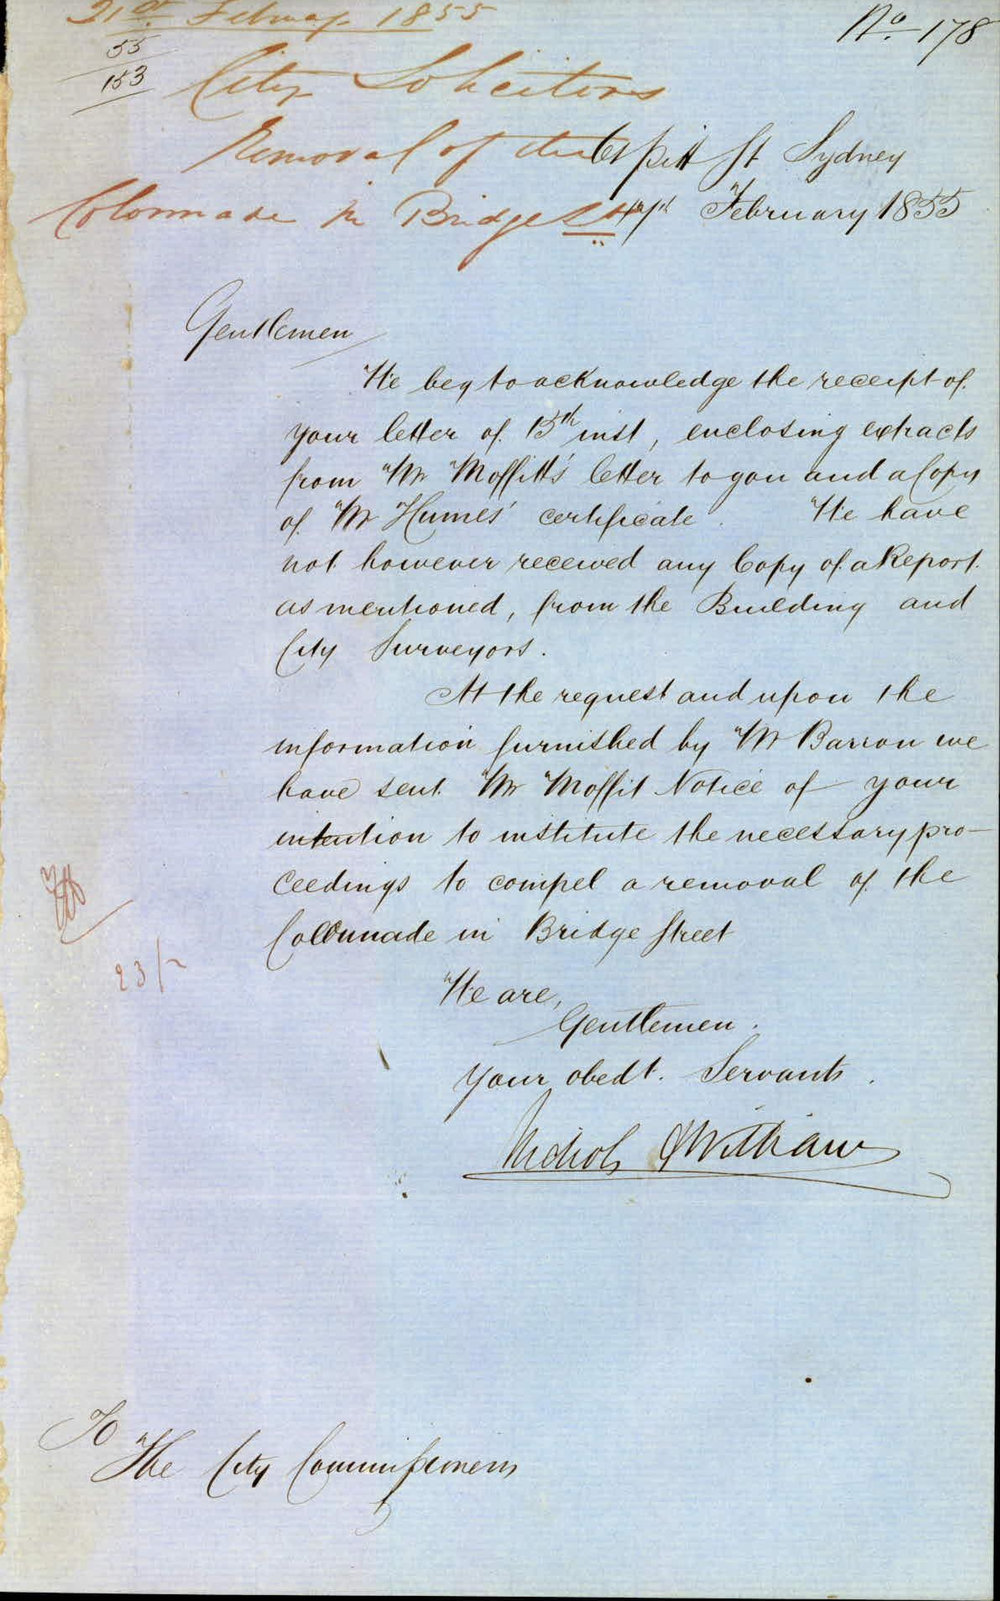 21st February 1855
No. 178
55
153
City Solicitors
Removal of the
61 Pitt St Sydney
Colonnade in Bridge St
17th February 1855
Gentlemen
We beg to acknowledge the receipt of
your letter of 15th inst, enclosing extracts
from Mr Moffitt's letter to you and a Copy
of Mr Humes' certificate. We have
not however received any Copy of a Report
as mentioned, from the Building and
City Surveyors.
At the request and upon the
information furnished by Mr Barron we
have sent Mr Moffit Notice of your
intention to institute the necessary pro-
ceedings to compel a removal of the
Collonnade in Bridge Street
We are,
Gentlemen.
Your obedt. Servants.
Nichols & Williams
23/2
To
The City Commissioners